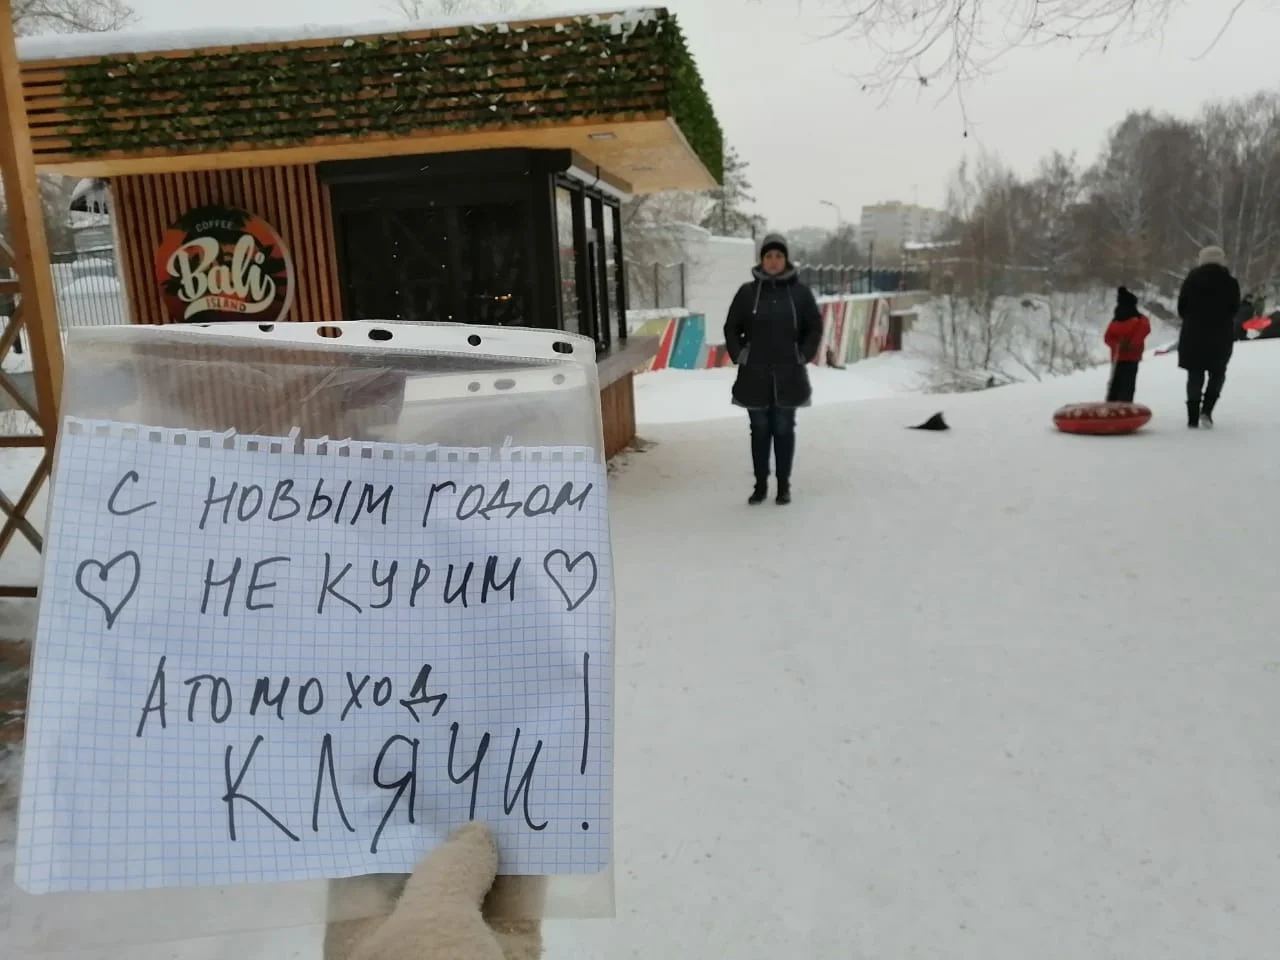 COFFEE
Bali
ISLAND
С НОВЫМ ГОДОМ
♡ НЕ КУРИМ ♡
АТОМОХОД
КЛЯЧИ!